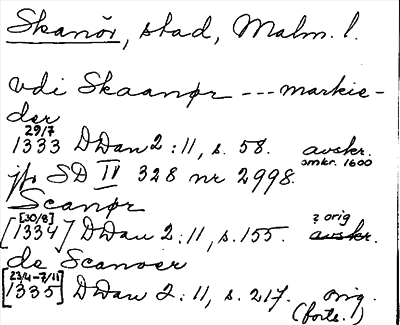 Skanör, stad, Malm. l.
vdi Skaanør --- markie-
der
29/7
1333 DDan 2:11, s. 58. avskr.
omkr. 1600
jfr SD IV 328 nr 2998.
Scanør
[30/8] ? orig
[1334] DDan 2:11, s. 155. avskr.
de Scanoer
23/4-7/11
[1335] DDan 2:11, s. 217. orig.
(forts.)